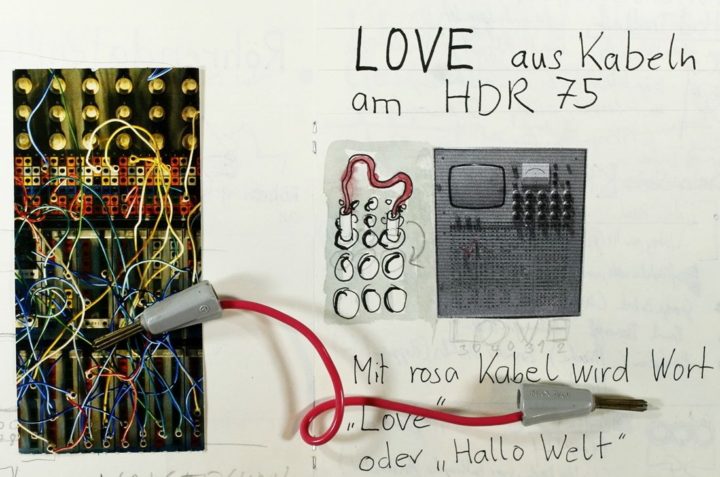 LOVE aus Kabeln
am HDR 75
LOVE
Mit rosa Kabel wird Wort
„Love“
oder „Hallo Welt“